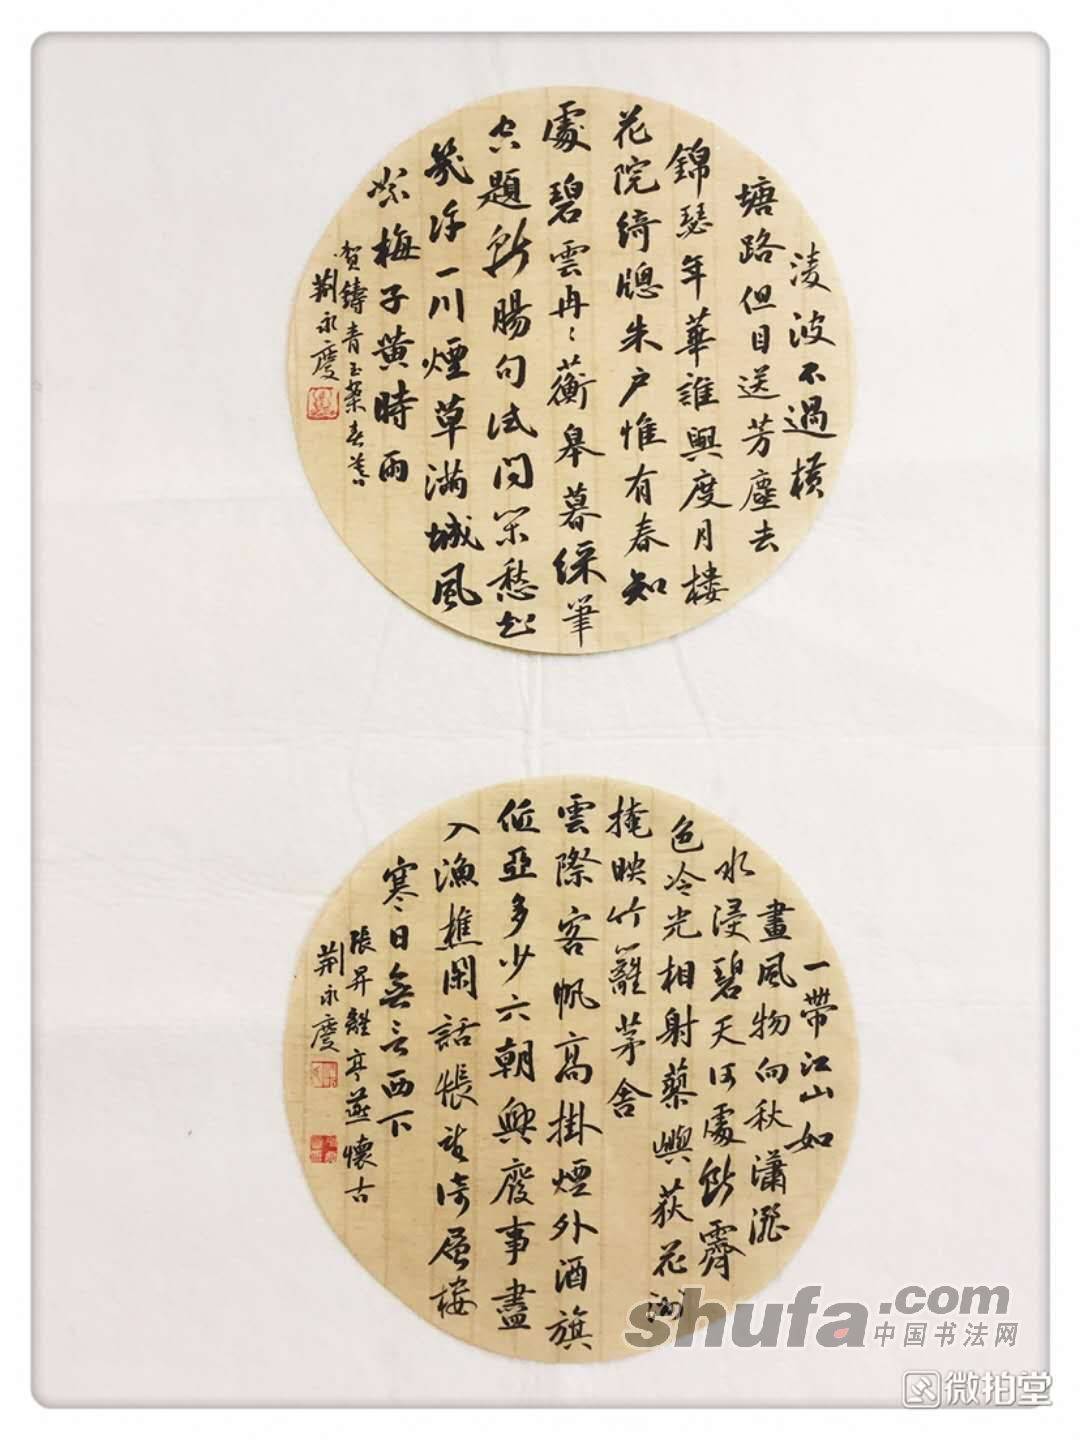 淩波不過橫
塘路但目送芳塵去
錦瑟年華誰與度月樓
花院綺牕朱户惟有春知
處碧雲冉〻蘅皋暮綵筆
空題斷腸句试问闲愁都
幾许一川煙草满城風
絮梅子黄時雨
贺鑄青玉案春暮
荆永慶
一帶江山如
畫風物向秋瀟灑
水浸碧天何處斷霽
色冷光相射蓼嶼荻花洲
掩映竹籬茅舍
雲際客帆高掛煙外酒旗
低亞多少六朝興廢事盡
入漁樵閑話悵望倚層樓
寒日無言西下
張昇離亭燕懷古
荆永慶
shufa.com
中国书法网
微拍堂